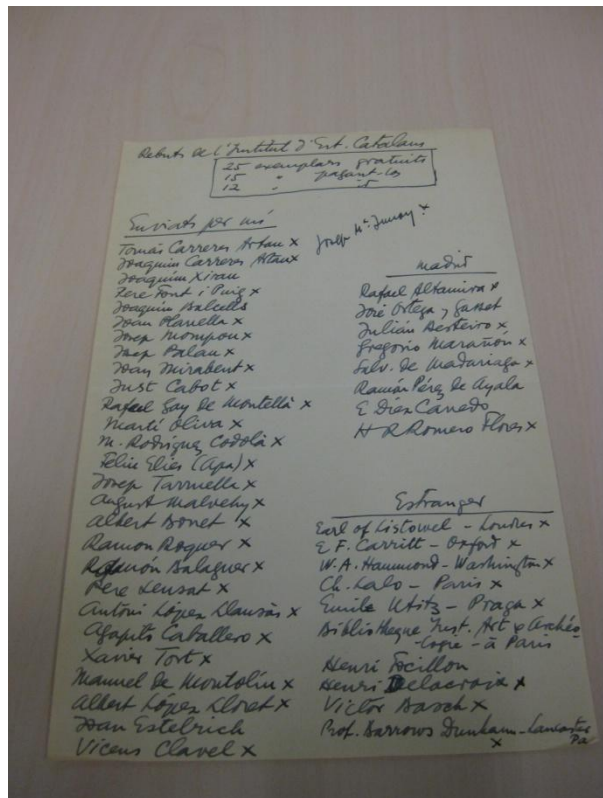 Rebuts de l'Institut d'Est. Catalans
25 exemplars gratuits
15 " pagant-los
12 " 5
Enviats per mi
Josep Mª Junoy x
Tomás Carreras Artau x
Joaquim Carreras Artau x
Joaquim Xirau
Pere Font i Puig x
Joaquim Balcells
Joan Planella x
Josep Mompou x
Josep Palau x
Joan Mirabent x
Just Cabot x
Rafael Gay de Montellà x
Martí Oliva x
M. Rodríguez Codolà x
Feliu Elies (Apa) x
Josep Tarruella x
August Malvehy x
Albert Bonet x
Ramon Roquer x
Ramón Balaguer x
Pere Lensat x
Antoni López Llausàs x
Agapito Caballero x
Xavier Tort x
Manuel de Montoliu x
Albert López Lloret x
Joan Estelrich
Vicens Clavel x
Madrid
Rafael Altamira x
José Ortega y Gasset
Julián Besteiro x
Gregorio Marañón x
Salv. de Madariaga x
Ramón Pérez de Ayala
E Díez Canedo
H R Romero Flores x
Estranger
Earl of Listowel - Londres x
E F. Carritt - Oxford x
W. A. Hammond - Washington x
Ch. Lalo - Paris x
Emile Utitz - Praga x
Bibliotheque Inst. Art & Archéo-
logie - à Paris
Henri Focillon
Henri Delacroix x
Victor Basch x
Prof. Barrows Dunham - Lancaster
x Pa